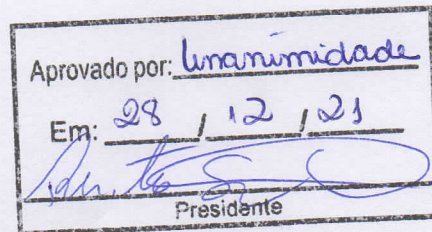 Aprovado por: Unanimidade
Em: 28 / 12 / 21
Presidente